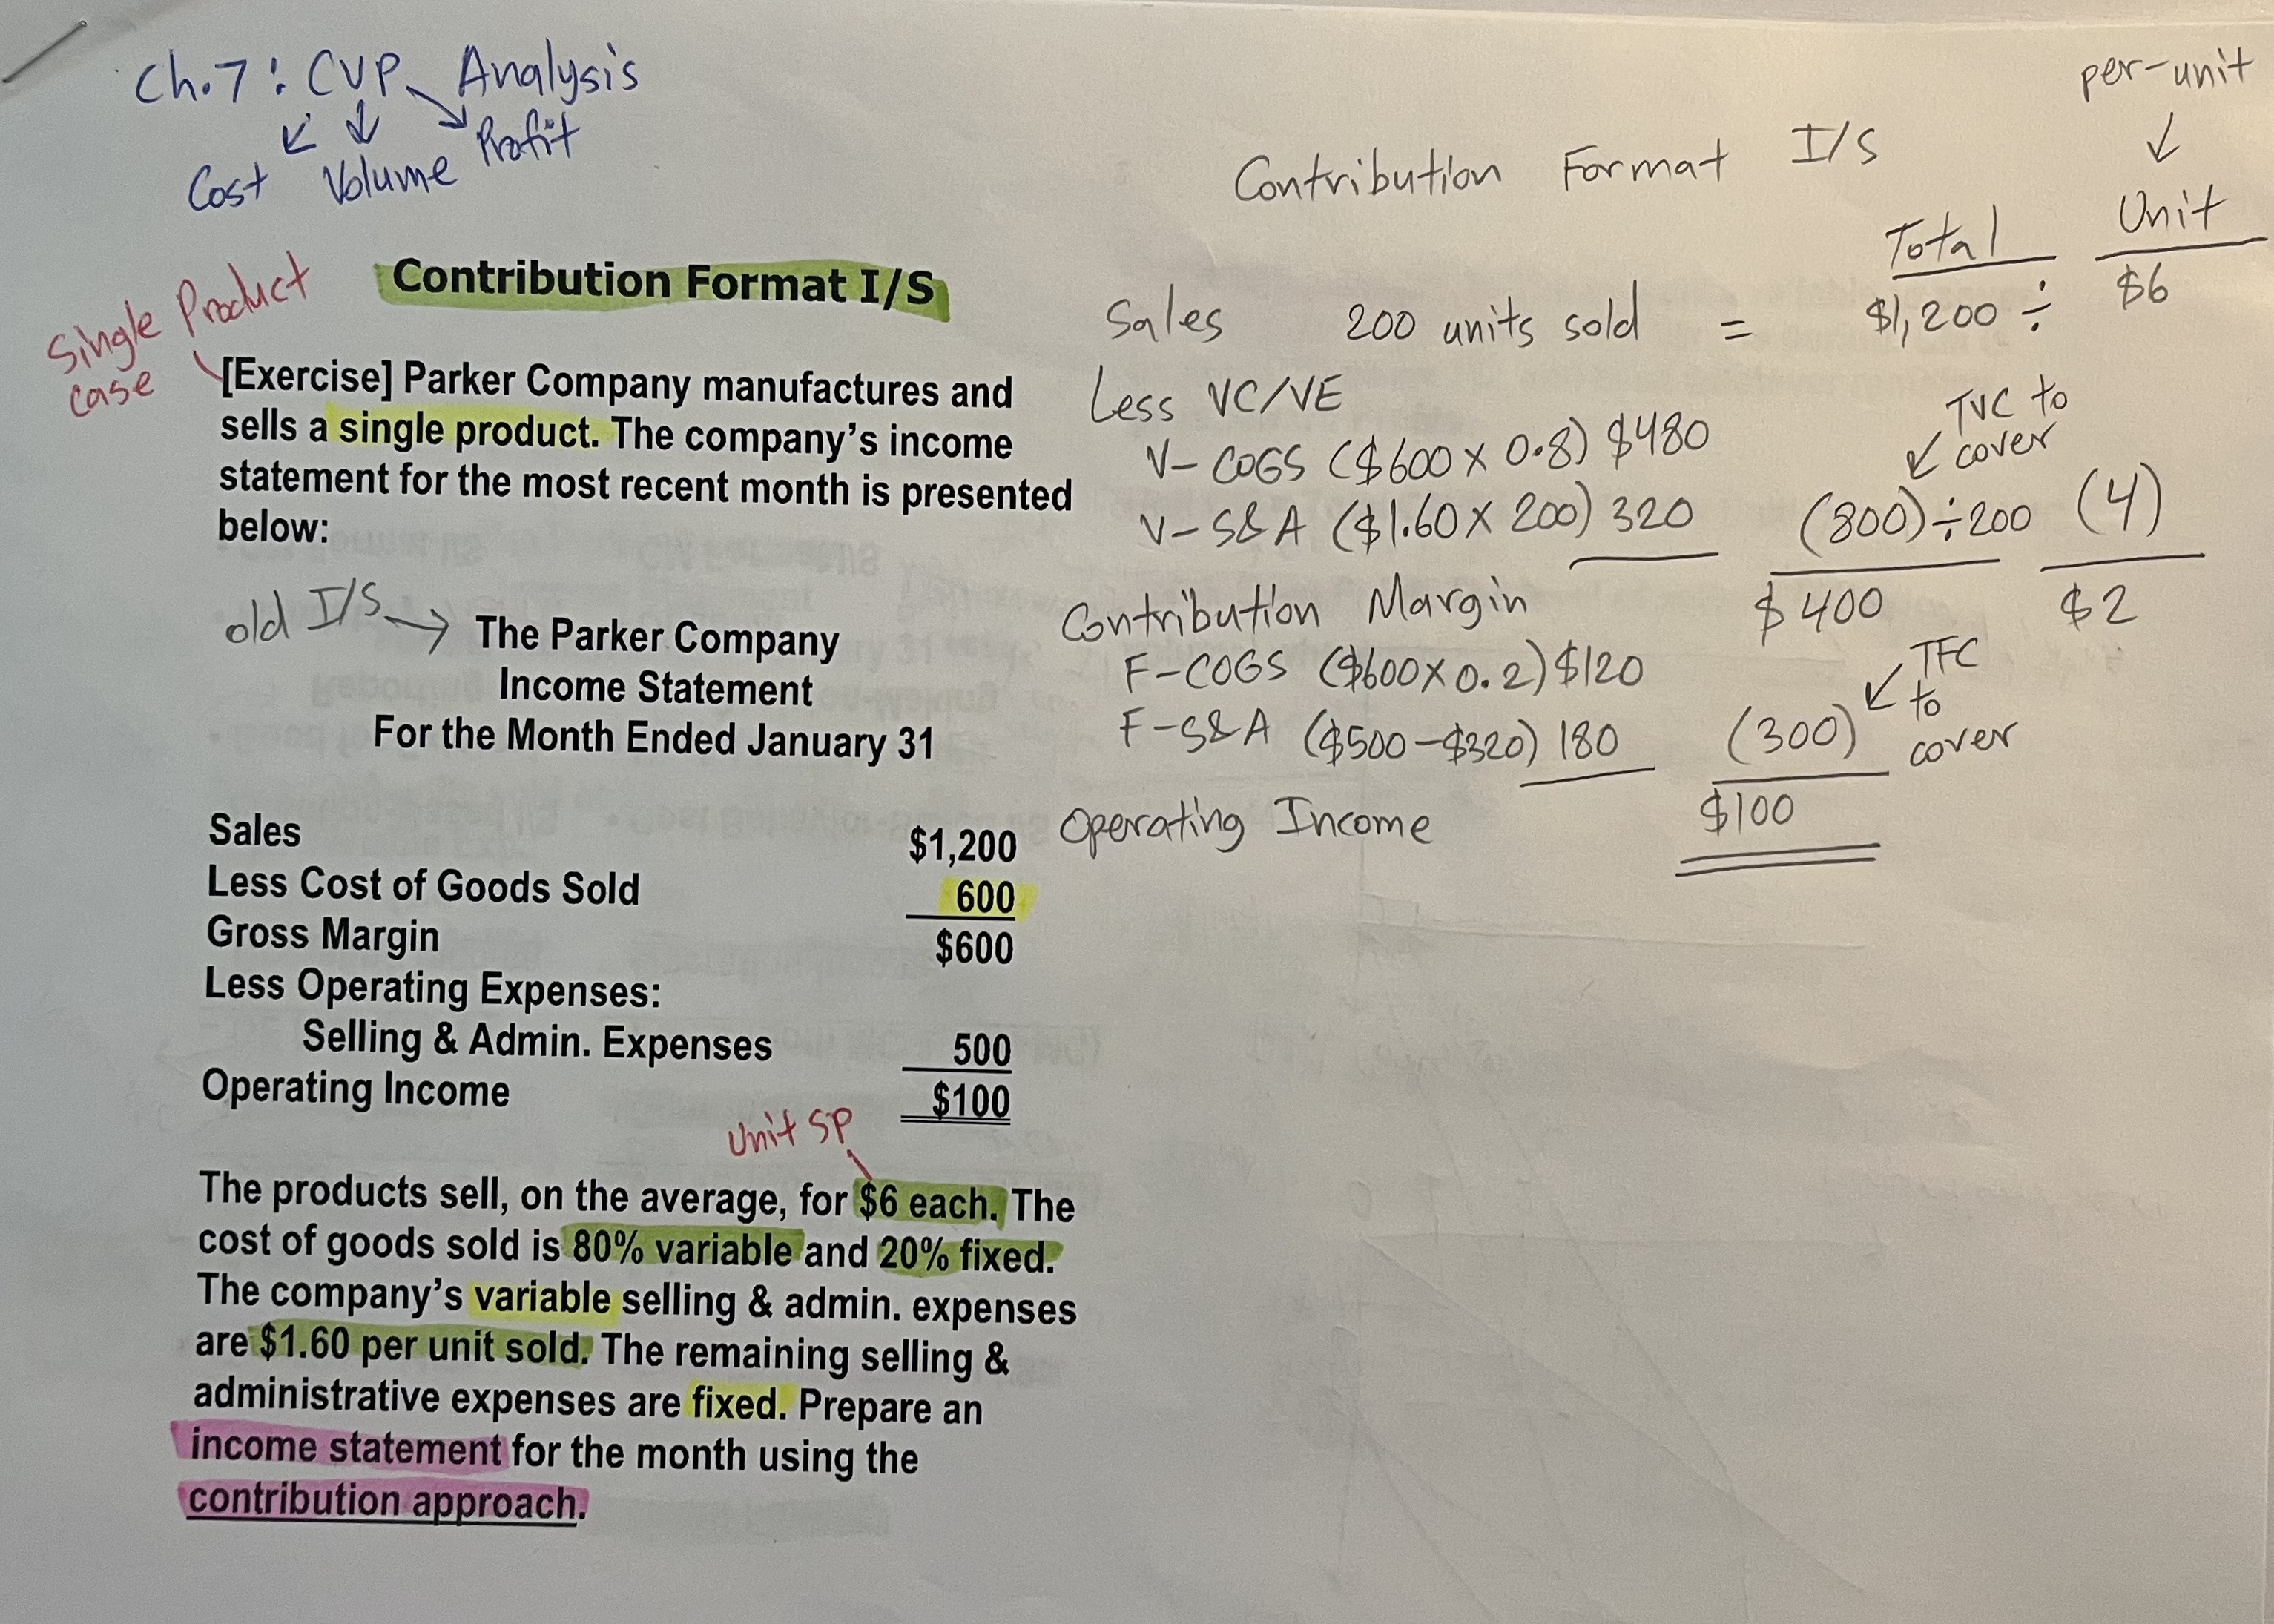 Ch.7: CVP Analysis
Cost Volume Profit
Single Product
case
Contribution Format I/S
[Exercise] Parker Company manufactures and
sells a single product. The company's income
statement for the most recent month is presented
below:
old I/S → The Parker Company
Income Statement
For the Month Ended January 31
Sales $1,200
Less Cost of Goods Sold 600
Gross Margin $600
Less Operating Expenses:
Selling & Admin. Expenses 500
Operating Income $100
Unit SP
The products sell, on the average, for $6 each. The
cost of goods sold is 80% variable and 20% fixed.
The company's variable selling & admin. expenses
are $1.60 per unit sold. The remaining selling &
administrative expenses are fixed. Prepare an
income statement for the month using the
contribution approach.
per-unit
Contribution Format I/S
Total Unit
Sales 200 units sold = $1,200 ÷ $6
Less VC/VE
TVC to
cover
V- COGS ($600 x 0.8) $480
V- S&A ($1.60 x 200) 320 (800) ÷ 200 (4)
Contribution Margin $400 $2
F-COGS ($600 x 0.2) $120
TFC
to
cover
F-S&A ($500-$320) 180 (300)
Operating Income $100